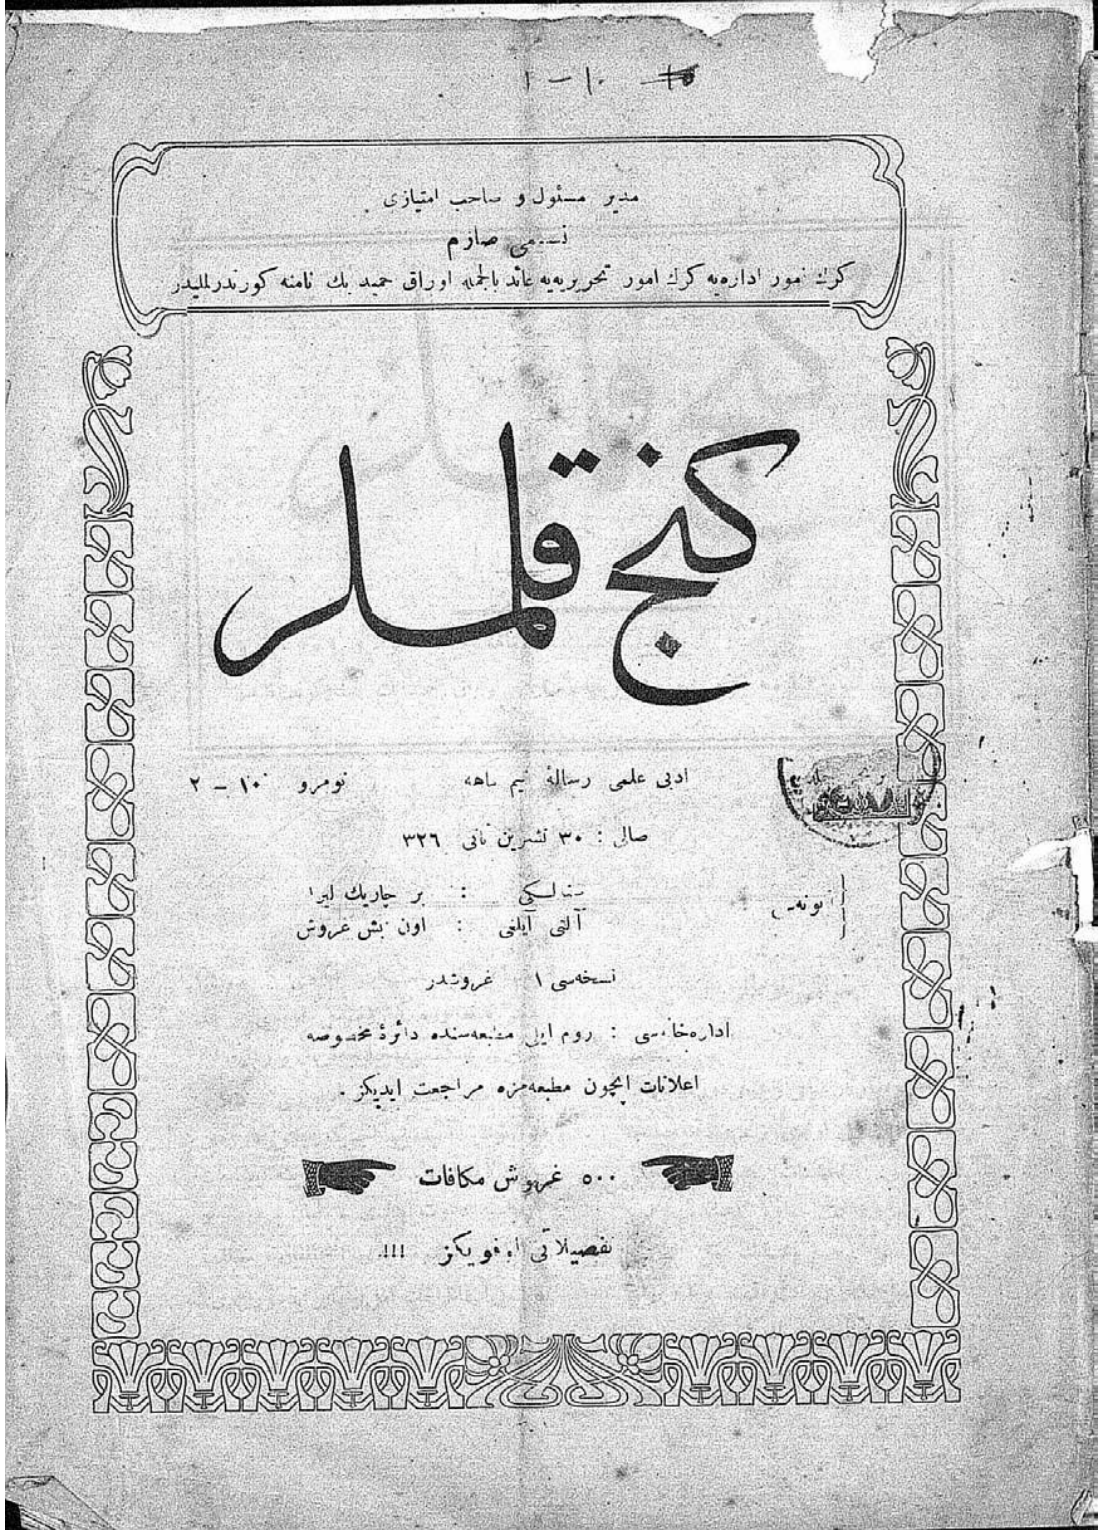 ١ – ١٠
مدير مسئول و صاحب امتيازى
نسيمى صارم
كرك امور اداره‌يه كرك امور تحريريه‌يه عائد بالجمله اوراق حميد بك نامنه كوندرلمليدر
كنج قلملر
ادبى علمى رسالهٔ نيم ماهه نومرو ١٠ – ٢
صالى : ٣٠ تشرين ثانى ٣٢٦
سنه‌لكى : بر چاريك ليرا
آبونه‌سى
آلتى آيلغى : اون بش غروش
نسخه‌سى ١ غروشدر
اداره‌خانه‌سى : روم ايلى مطبعه‌سنده دائرهٔ مخصوصه
اعلانات ايچون مطبعه‌مزه مراجعت ايديكز .
٥٠٠ غروش مكافات
تفصيلاتى اوقويكز !!!